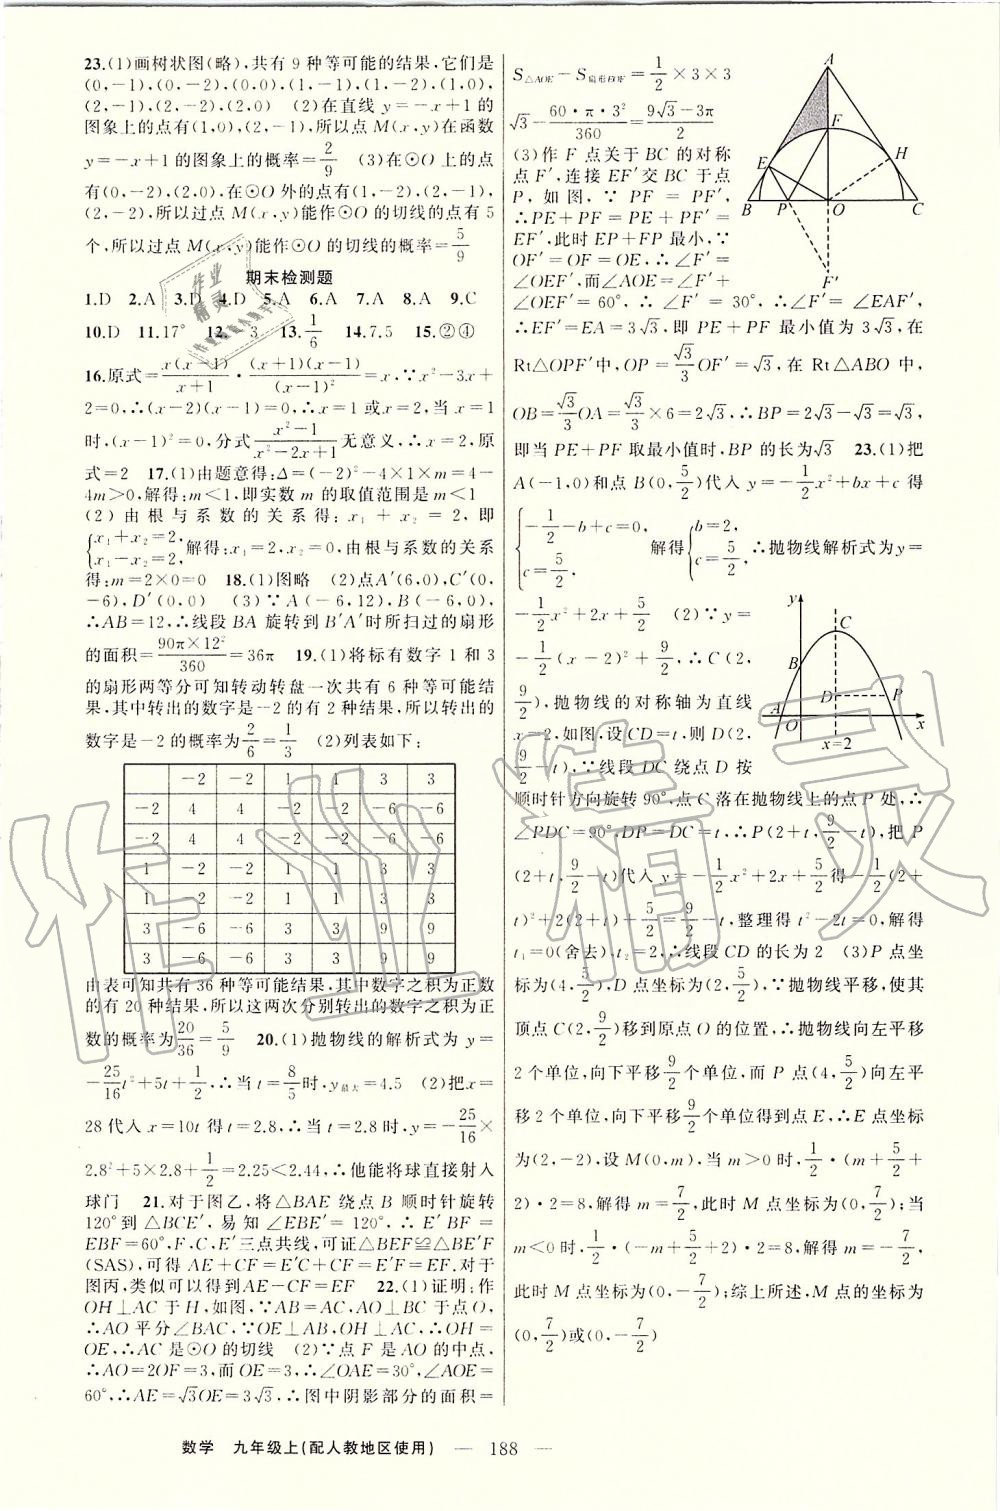 23.(1)画树状图(略),共有9种等可能的结果,它们是
(0,-1),(0,-2),(0,0),(1,-1),(1,-2),(1,0),
(2,-1),(2,-2),(2,0) (2)在直线y=-x+1的
图象上的点有(1,0),(2,-1),所以点M(x,y)在函数
y=-x+1的图象上的概率=2/9 (3)在⊙O上的点
有(0,-2),(2,0),在⊙O外的点有(1,-2),(2,-1),
(2,-2),所以过点M(x,y)能作⊙O的切线的点有5
个,所以过点M(x,y)能作⊙O的切线的概率=5/9
期末检测题
1.D 2.A 3.D 4.D 5.A 6.A 7.A 8.A 9.C
10.D 11.17° 12. 3 13.1/6 14.7,5 15.②④
16.原式=x(x-1)/(x+1)·(x+1)(x-1)/(x-1)²=x,∵x²-3x+
2=0,∴(x-2)(x-1)=0,∴x=1或x=2,当x=1
时,(x-1)²=0,分式(x²-1)/(x²-2x+1)无意义,∴x=2,原
式=2 17.(1)由题意得:Δ=(-2)²-4×1×m=4-
4m>0,解得:m<1,即实数m的取值范围是m<1
(2)由根与系数的关系得:x₁+x₂=2,即
{x₁+x₂=2, x₁-x₂=2,解得:x₁=2,x₂=0,由根与系数的关系
得:m=2×0=0 18.(1)图略 (2)点A′(6,0),C′(0,
-6),D′(0,0) (3)∵A(-6,12),B(-6,0),
∴AB=12,∴线段BA旋转到B′A′时所扫过的扇形
的面积=90π×12²/360=36π 19.(1)将标有数字1和3
的扇形两等分可知转动转盘一次共有6种等可能结
果,其中转出的数字是-2的有2种结果,所以转出的
数字是-2的概率为2/6=1/3 (2)列表如下:
-2 -2 1 1 3 3
-2 4 4 -2 -2 -6 -6
-2 4 4 -2 -2 -6 -6
1 -2 -2 1 1 3 3
1 -2 -2 1 1 3 3
3 -6 -6 3 3 9 9
3 -6 -6 3 3 9 9
由表可知共有36种等可能结果,其中数字之积为正数
的有20种结果,所以这两次分别转出的数字之积为正
数的概率为20/36=5/9 20.(1)抛物线的解析式为y=
-25/16t²+5t+1/2,∴当t=8/5时,y最大=4.5 (2)把x=
28代入x=10t得t=2.8,∴当t=2.8时,y=-25/16×
2.8²+5×2.8+1/2=2.25<2.44,∴他能将球直接射入
球门 21.对于图乙,将△BAE绕点B顺时针旋转
120°到△BCE′,易知∠EBE′=120°,∴E′BF=
EBF=60°,F,C,E′三点共线,可证△BEF≌△BE′F
(SAS),可得AE+CF=E′C+CF=E′F=EF.对于
图丙,类似可以得到AE-CF=EF 22.(1)证明:作
OH⊥AC于H,如图,∵AB=AC,AO⊥BC于点O,
∴AO平分∠BAC,∵OE⊥AB,OH⊥AC,∴OH=
OE,∴AC是⊙O的切线 (2)∵点F是AO的中点,
∴AO=2OF=3,而OE=3,∴∠OAE=30°,∠AOE=
60°,∴AE=√3OE=3√3,∴图中阴影部分的面积=
S△AOE-S扇形EOF=1/2×3×3
√3-60·π·3²/360=(9√3-3π)/2
(3)作F点关于BC的对称
点F′,连接EF′交BC于点
P,如图,∵PF=PF′,
∴PE+PF=PE+PF′=
EF′,此时EP+FP最小,∵
OF′=OF=OE,∴∠F′=
∠OEF′,而∠AOE=∠F′+
∠OEF′=60°,∴∠F′=30°,∴∠F′=∠EAF′,
∴EF′=EA=3√3,即PE+PF最小值为3√3,在
Rt△OPF′中,OP=√3/3OF′=√3,在Rt△ABO中,
OB=√3/3OA=√3/3×6=2√3,∴BP=2√3-√3=√3,
即当PE+PF取最小值时,BP的长为√3 23.(1)把
A(-1,0)和点B(0,5/2)代入y=-1/2x²+bx+c得
{-1/2-b+c=0, c=5/2, 解得{b=2, c=5/2, ∴抛物线解析式为y=
-1/2x²+2x+5/2 (2)∵y=
-1/2(x-2)²+9/2,∴C(2,
9/2),抛物线的对称轴为直线
x=2,如图,设CD=t,则D(2,
9/2-t),∵线段DC绕点D按
顺时针方向旋转90°,点C落在抛物线上的点P处,∴
∠PDC=90°,DP=DC=t,∴P(2+t,9/2-t),把P
(2+t,9/2-t)代入y=-1/2x²+2x+5/2得-1/2(2+
t)²+2(2+t)+5/2=9/2-t,整理得t²-2t=0,解得
t₁=0(舍去),t₂=2,∴线段CD的长为2 (3)P点坐
标为(4,5/2),D点坐标为(2,5/2),∵抛物线平移,使其
顶点C(2,9/2)移到原点O的位置,∴抛物线向左平移
2个单位,向下平移9/2个单位,而P点(4,5/2)向左平
移2个单位,向下平移9/2个单位得到点E,∴E点坐标
为(2,-2),设M(0,m),当m>0时,1/2·(m+5/2+
2)·2=8,解得m=7/2,此时M点坐标为(0,7/2);当
m<0时,1/2·(-m+5/2+2)·2=8,解得m=-7/2,
此时M点坐标为(0,-7/2);综上所述,M点的坐标为
(0,7/2)或(0,-7/2)
A
F
E
H
B P O C
F′
y
C
B
D P
A O x
x=2
作业精灵
数学 九年级上(配人教地区使用) — 188 —